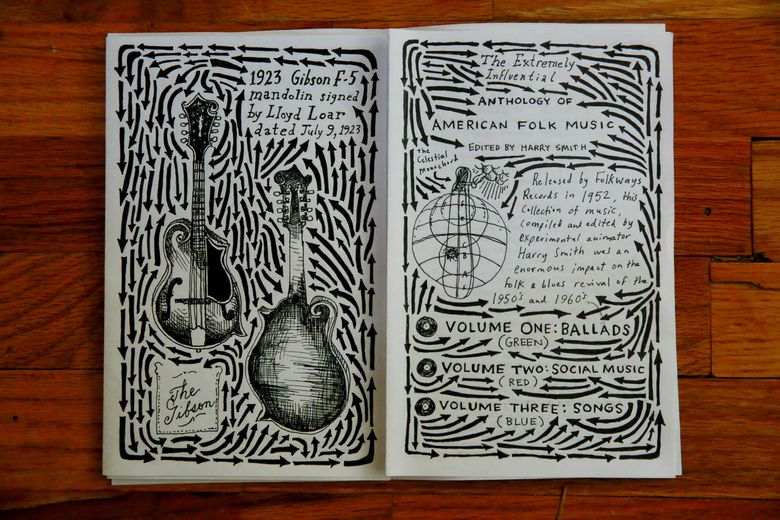 1923 Gibson F-5
mandolin signed
by Lloyd Loar
dated July 9, 1923
The
Gibson
The Extremely
Influential
ANTHOLOGY OF
AMERICAN FOLK MUSIC
EDITED BY HARRY SMITH
the
Celestial
Monochord
Released by Folkways
Records in 1952, this
collection of music,
compiled and edited by
experimental animator
Harry Smith was an
enormous impact on the
folk & blues revival of the
1950's and 1960's.
VOLUME ONE: BALLADS
(GREEN)
VOLUME TWO: SOCIAL MUSIC
(RED)
VOLUME THREE: SONGS
(BLUE)